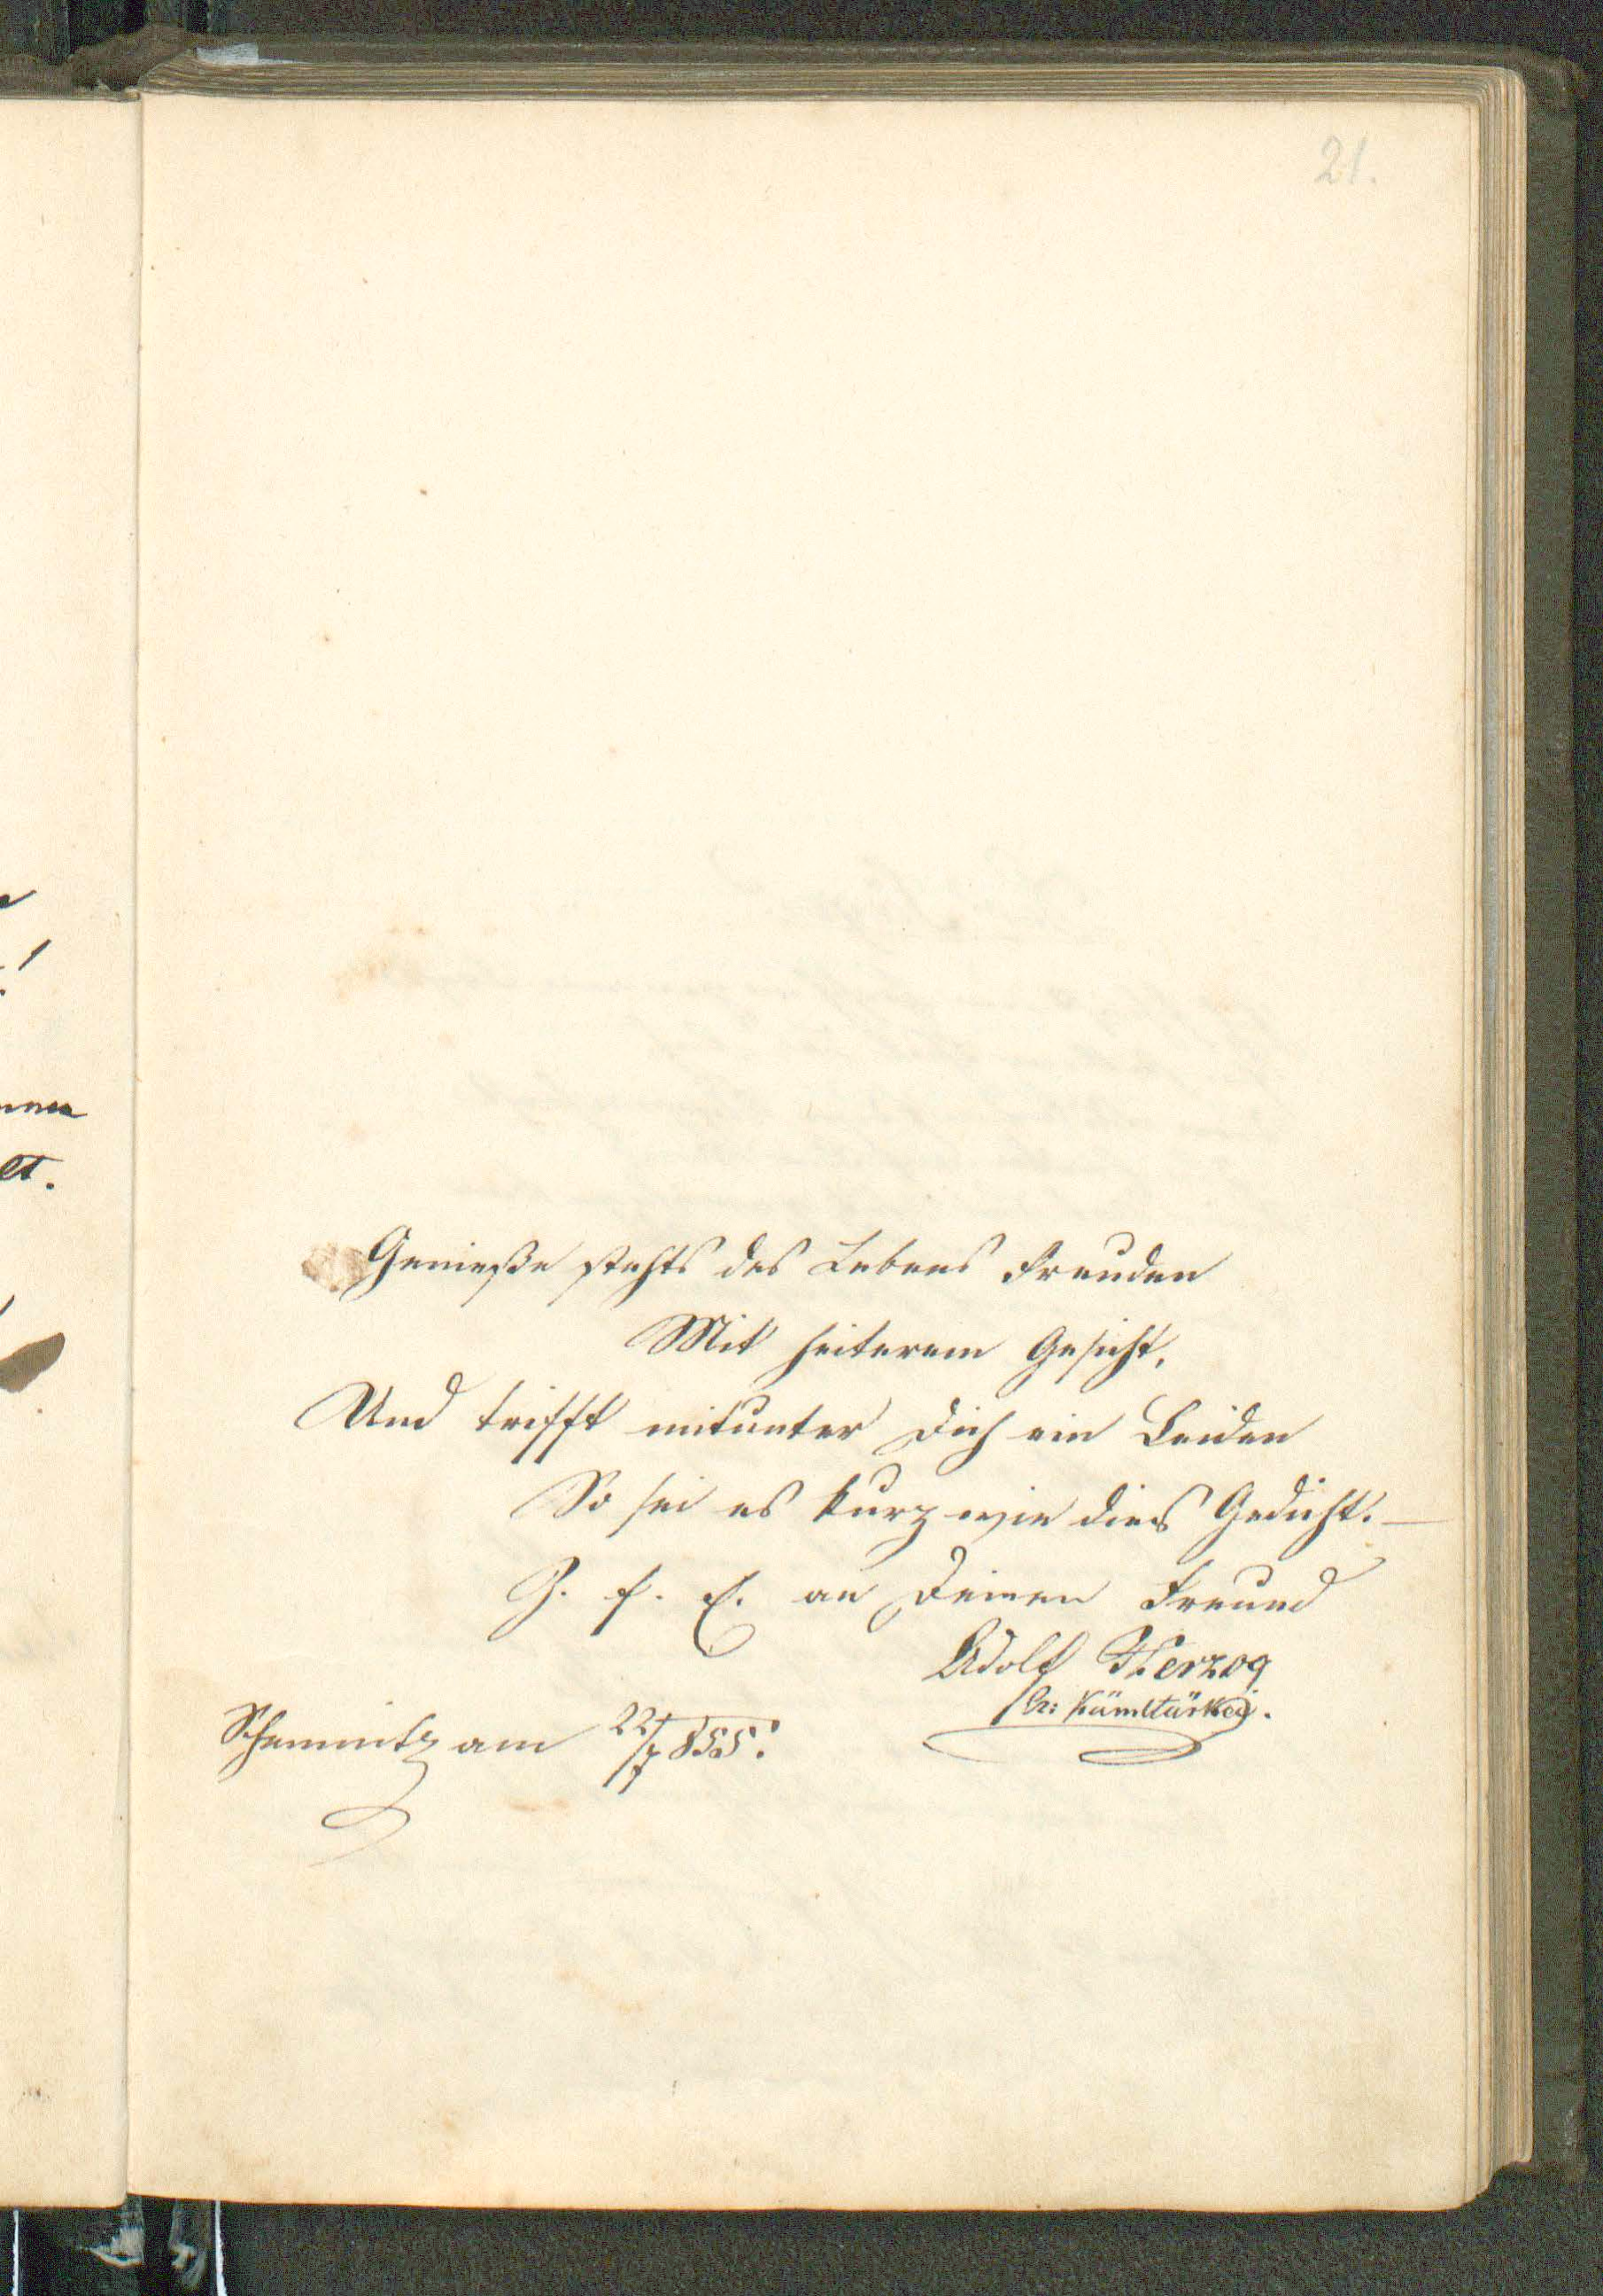 21.
Genieße stehts des Lebens Freuden
Mit heiterem Gesicht,
Und trifft mitunter Dich ein Leiden
So sei es kurz wie dies Gedicht. —
Z. f. E. an Deinen Freund
Adolf Herzog
Schemnitz am 22/7 855.